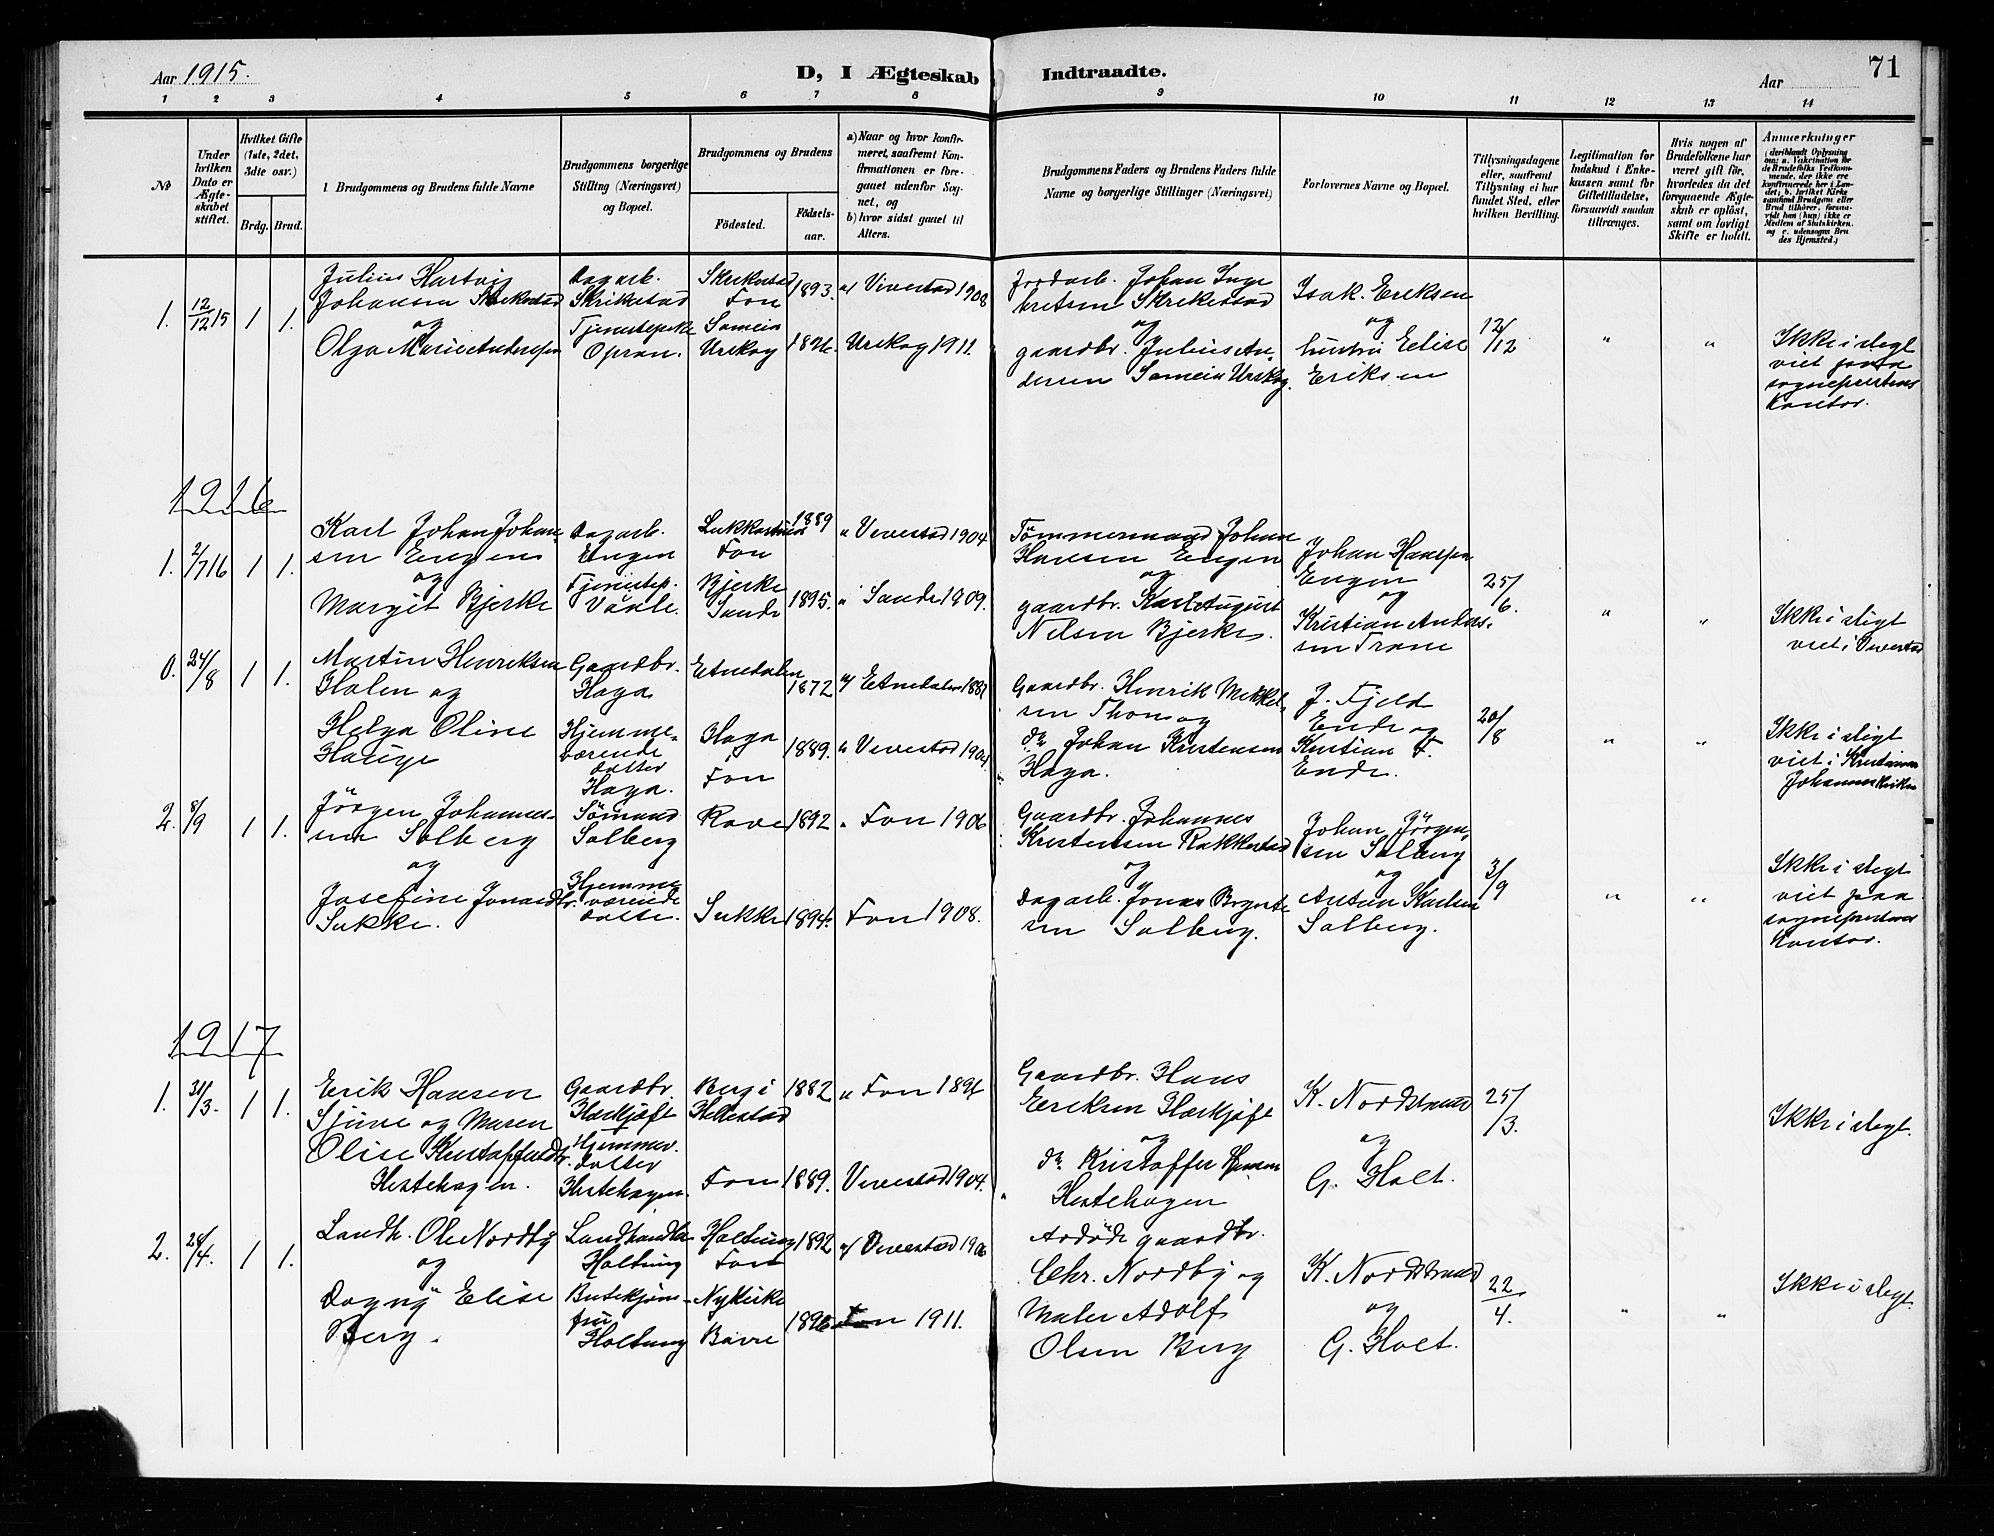 Aar 1915.
D, I Ægteskab
Indtraadte.
Aar
71
1 2 3 4 5 6 7 8 9 10 11 12 13 14
№
Under hvilken Dato er Ægteskabet stiftet.
Hvilket Gifte (1ste, 2det, 3die osv.)
Brdg. Brud.
Brudgommens og Brudens fulde Navne
Brudgommens borgerlige Stilling (Næringsvei) og Bopæl.
Brudgommens og Brudens
Fødested.
Fødselsaar.
a) Naar og hvor konfirmeret, saafremt Konfirmationen er foregaaet udenfor Sognet, og
b) hvor sidst gaaet til Alters.
Brudgommens Faders og Brudens Faders fulde Navne og borgerlige Stillinger (Næringsvei)
Forlovernes Navne og Bopæl.
Tillysningsdagene eller, saafremt Tillysning ei har fundet Sted, efter hvilken Bevilling.
Legitimation for Indskud i Enkekassen samt for Giftetilladelse, forsaavidt saadan tiltrænges.
Hvis nogen af Brudefolkene har været gift før, hvorledes da det foregaaende Ægteskab er opløst, samt om lovligt Skifte er holdt.
Anmærkninger
1. 12/12 15 1 1.
Julius Hartvig
Johansen Skrikestad
og
Olga Marie Anderssen
Dagarb.
Skrikestad
Tjenestepike
Opran.
Skrikestad
Fon 1893.
Somein
Urskog
a) Vivestad 1908
Urskog 1911.
Jordarb. Johan Inge
bretsen Skrikestad
og
gaardbr. Julius An-
dersen Somein Urskog.
Isak. Eriksen
og
hustru Elise
Eriksen
12/12
" "
Ikke i slegt
viet paa
sogneprestens
Kontor.
1916
1. 2/7 16 1 1.
Karl Johan Johan-
sen Engen
og
Margit Bjerke
Dagarb.
Engen
Tjenestep.
Fon 1889
Bjerke
Sande 1895.
" Vivestad 1904
" Sande 1909.
Tømmermand Johan
Hansen Engen
og
gaardbr. Karl August
Nilsen Bjerke.
Johan Hanssen
Engen
og
Kristian Anders-
sen Trane
25/6.
" "
Ikke i slegt
viet i Vivestad
0. 24/8 1 1.
Martin Henriksen
Holen og
Helga Oline
Hauge
Gaardbr.
Haga
Hjemme-
værende
datter
Haga.
Etnedalen
1872
Haga
Fon 1889.
a) Etnedalen
" Vivestad
Gaardbr. Henrik Mikkel-
sen Thon og
do Johan Kristensen
Haga.
J. Fjeld
Ende og
Kristian F.
Ende.
20/8
" "
Ikke i slegt
viet i Kristiania
Johanneskirke
2. 8/9 1 1.
Jørgen Johannes-
sen Solberg
og
Josefine Jonasdtr.
Sukke.
Sømand
Solberg
Hjemme
værende
datter.
Rove 1892
Sukke 1894.
" Fon 1906
Fon 1908.
Gaardbr. Johannes
Kristensen Rakkestad
og
Dagarb. Jonas Brynte
sen Solberg.
Johan Jørgen-
sen Solberg
og
Anton Karlsen
Solberg.
3/9
" "
Ikke i slegt
viet paa
sogneprestens
Kontor.
1917
1. 31/3. 1 1.
Erik Hansen
Sjuve og Maren
Olise Kristoffersdtr.
Hestehagen.
Gaardbr.
Horkjøfe
Hjemmev.
datter
Hestehagen.
Berg i
Hillestad 1882
Fon 1889.
" Fon 1896
Vivestad 1904.
Gaardbr. Hans
Eriksen Horkjøfe
og
do Kristoffer Hansen
Hestehagen
K. Nordstrand
og
G. Holt.
25/3.
Ikke i slegt.
2. 28/4. 1 1.
Landh. Ole Nordby
og
Dagny Elise
Berg.
Landhandler
Holtung
Butikkjom-
fru
Holtung
Holtung
Fon 1892
Nykirke
Borre 1896
a) Vivestad 1906
Fon 1911.
Avdøde gaardbr.
Chr. Nordby og
Maler Adolf
Olsen Berg
K. Nordstrand
og
G. Holt.
22/4.
" "
Ikke i slegt.